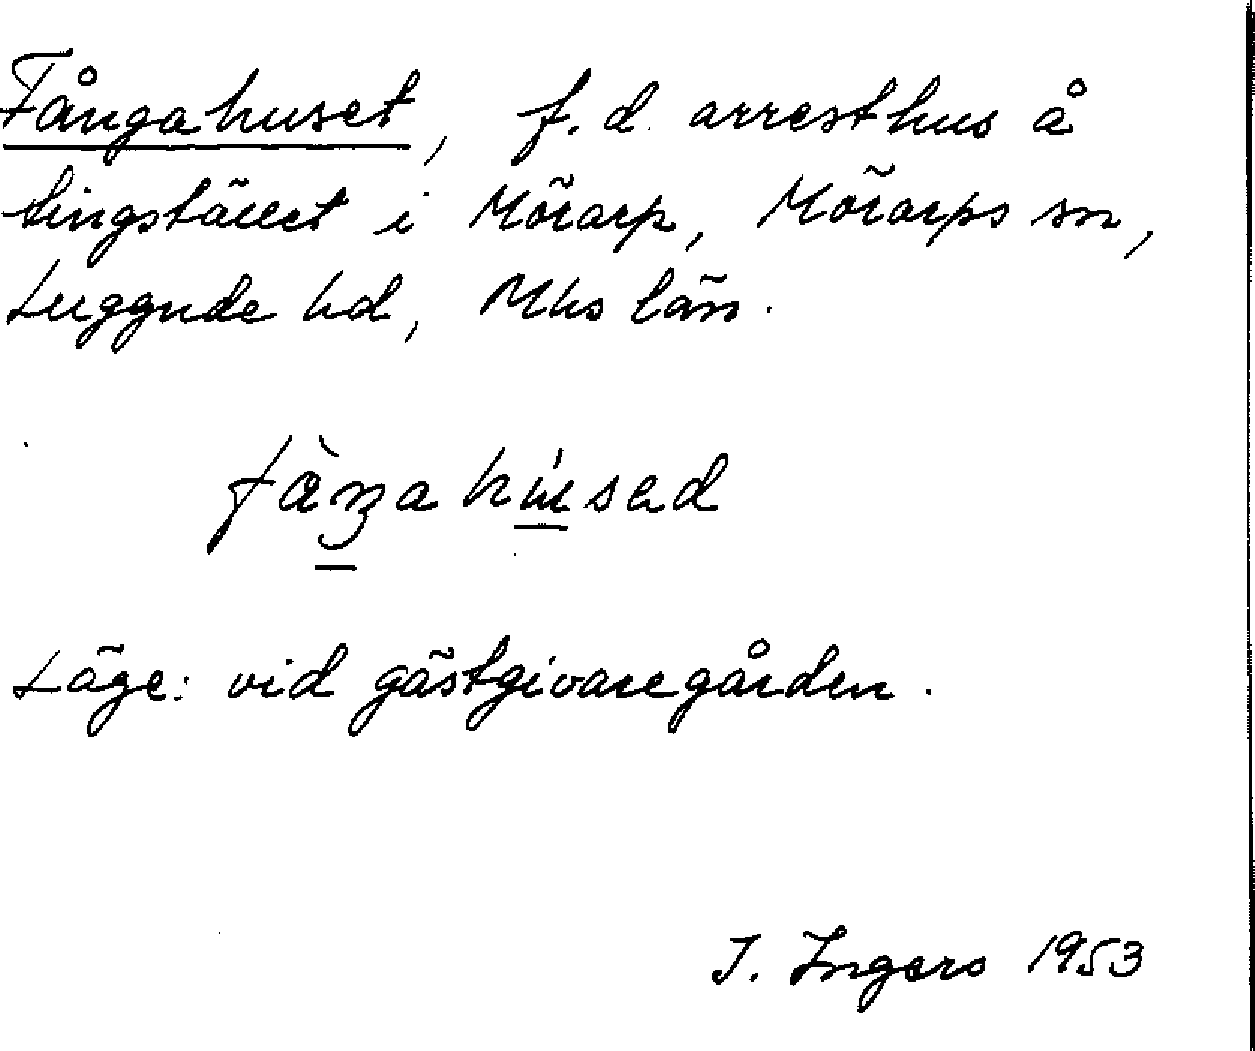 Fångahuset, f.d. arresthus å
tingstället i Mörarp, Mörarps sn,
Luggude hd, Mhs län.
fàŋahúsad
Läge: vid gästgivaregården.
I. Ingers 1953